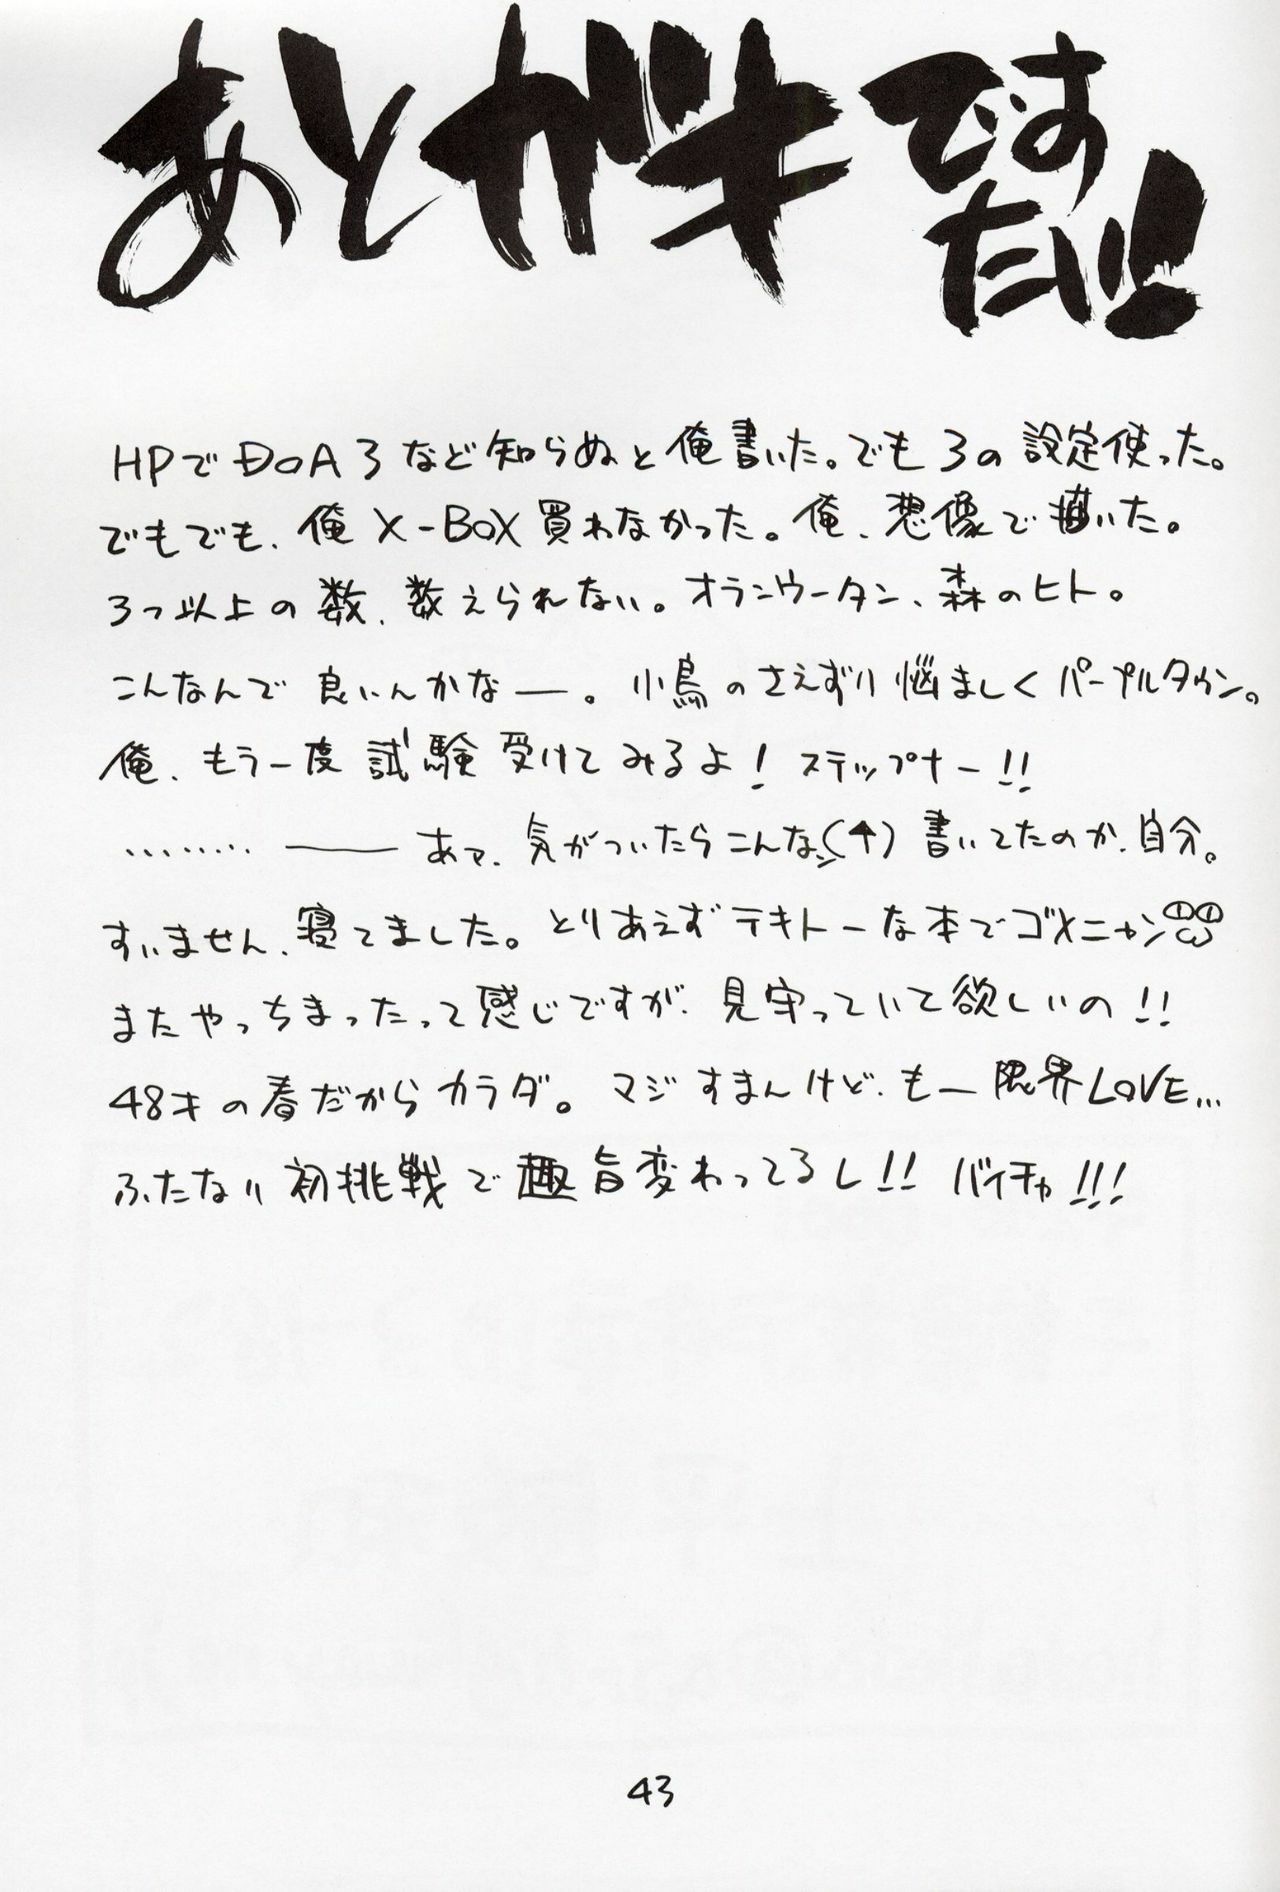 あとがきですたい!!
HPでDOA3など知らぬと俺書いた。でも3の設定使った。
でもでも、俺X-BOX買わなかった。俺、想像で描いた。
3つ以上の数、数えられない。オランウータン、森のヒト。
こんなんで良いんかなー。小鳥のさえずり悩ましくパープルタウン。
俺、もう一度試験受けてみるよ!ステップナー!!
……… ――― あァ、気がついたらこんな(↑)書いてたのか、自分。
すいません、寝てました。とりあえずテキトーな本でゴメニャン
またやっちまったって感じですが、見守っていて欲しいの!!
48才の春だからカラダ。マジすまんけど、もー限界LOVE…
ふたなり初挑戦で趣旨変わってるし!!バイチャ!!!
43